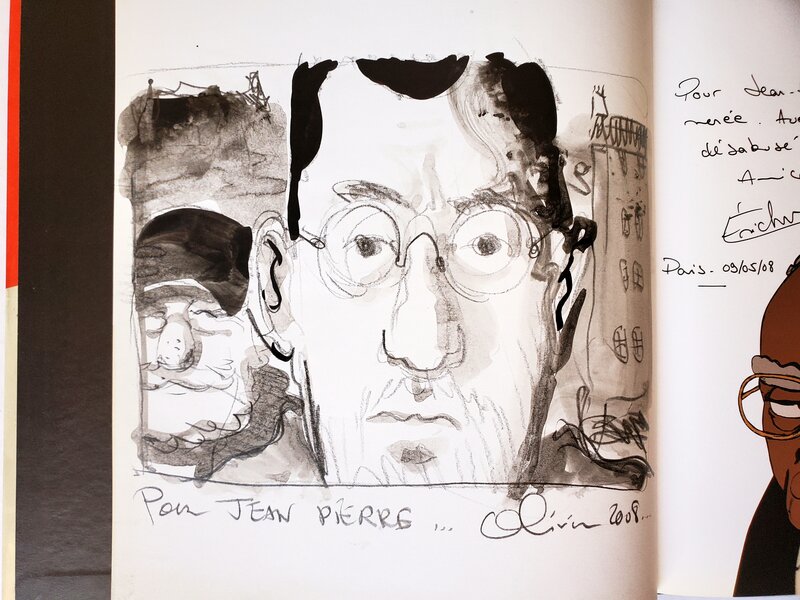 Pour JEAN PIERRE ... Olivier 2008...
Pour Jean-
menée. Av
désabusé
Amic
Paris - 09/05/08